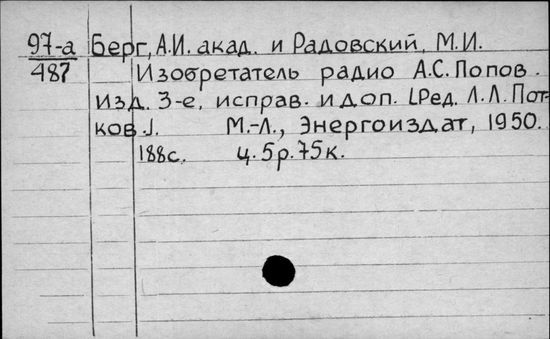 97-а Берг, А.И. акад. и Радовский, М.И.
487 Изобретатель радио А.С. Попов.
изд. 3-е, исправ. и доп. [Ред. Л.Л. Пот-
ков.]. М.-Л., Энергоиздат, 1950.
188с. ц. 5р. 75к.